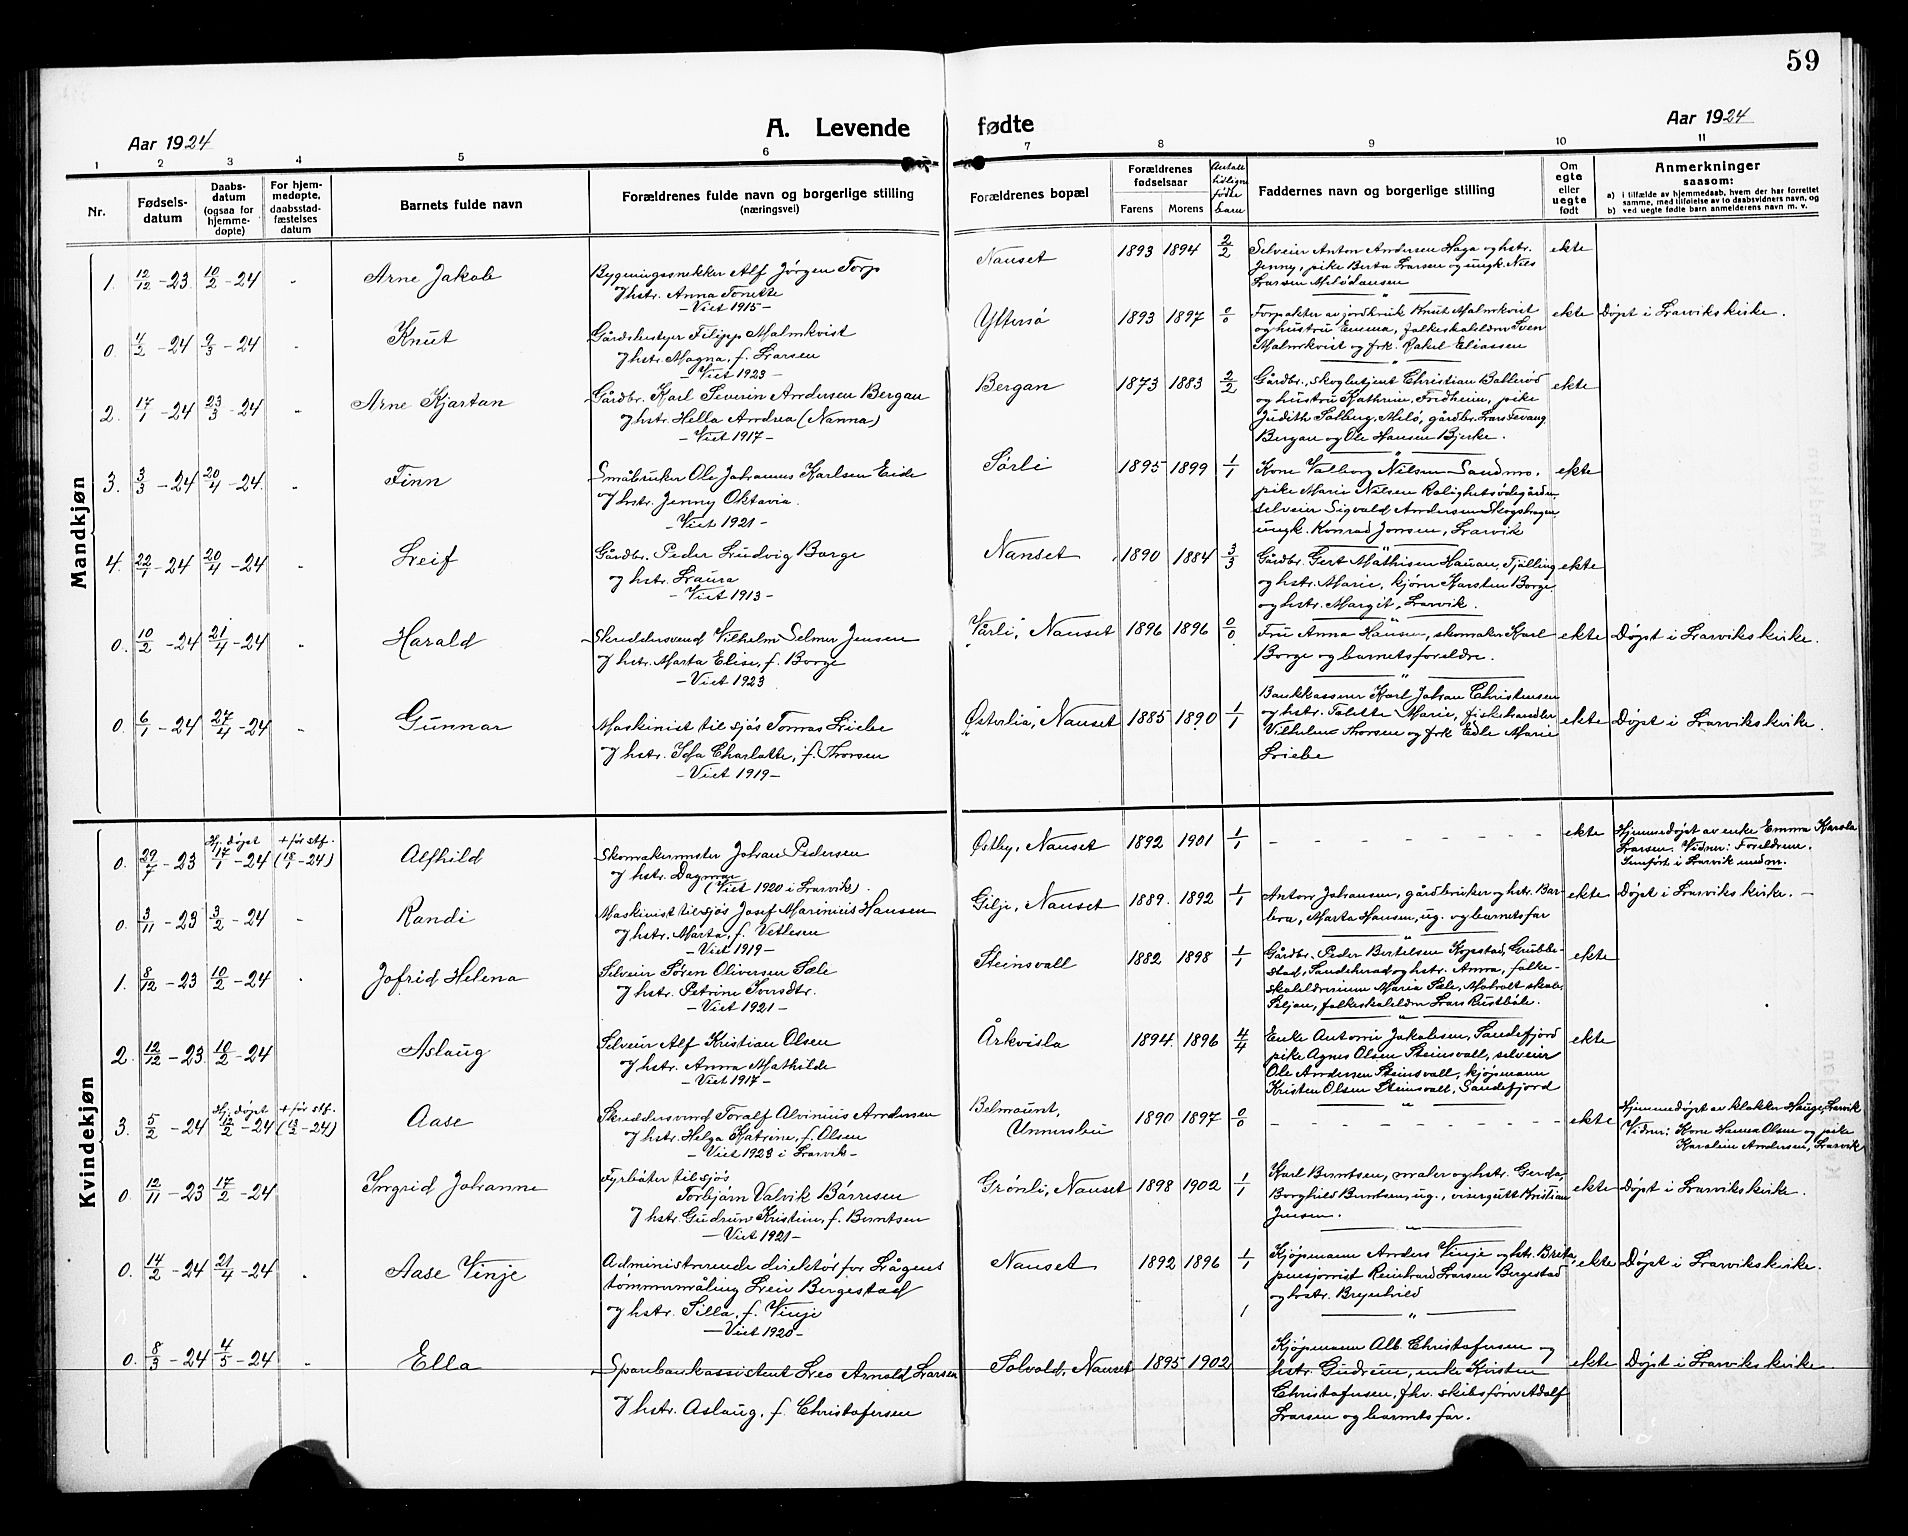 59
Aar 1924 A. Levende fødte Aar 1924
1 2 3 4 5 6 7 8 9 10 11
Nr.
Fødsels-
datum
Daabs-
datum
(ogsaa for
hjemme-
døpte)
For hjem-
medøpte,
daabsstad-
fæstelses
datum
Barnets fulde navn
Forældrenes fulde navn og borgerlige stilling
(næringsvei)
Forældrenes bopæl
Forældrenes
fødselsaar
Farens Morens
Antall
tidligere
fødte
barn
Faddernes navn og borgerlige stilling
Om
egte
eller
uegte
født
Anmerkninger
saasom:
a) i tilfælde av hjemmedaab, hvem der har forrettet
samme, med tilføielse av to daabsvidners navn, og
b) ved uegte fødte barn anmelderens navn m. v.
Mandkjøn
1. 12/12 -23 10/2 -24 Arne Jakob
Bygningssnekker Alf Jørgen Torp
og hstr. Anna Tonette
- Viet 1915 -
Nanset 1893 1894 2/2
Selveier Anton Andersen Haga og hstr.
Jenny, pike Berta Larsen og ungk. Nils
Larsen
ekte
0. 4/2 -24 9/3 -24 Knut
Gårdsbestyr Filipp Malmkvist
og hstr. Magna, f. Larsen
- Viet 1923 -
Yttersø 1893 1897 0/0
Forpakter av jordbruk Knut Malmkvist
og hustru Emma, folkeskoleldrn Sven
Malmkvist og frk. Rakel Eliassen
ekte Døpt i Larvikskirke.
2. 17/1 -24 23/3 -24 Arne Kjartan
Gårdbr. Karl Severin Andersen Bergan
og hstr. Hella Andrea (Nanna)
- Viet 1917 -
Bergan 1873 1883 2/2
Gårdbr., skogbetjent Christian Bollerød
og hustru Kathrin, Fridheim, pike
Judith Solberg, Melø, gårdbr. Lars Fevang
Bergan og Ole Hansen Bjerke.
ekte
3. 3/3 -24 20/4 -24 Finn
Småbruker Ole Johannes Karlsen Eide
og hstr. Jenny Oktavia.
- Viet 1921 -
Sørli 1895 1899 1/1
Kone Valborg Nilsen Sandmo.
pike Marie Nilsen
selveier Sigvald Andersen Skogshagen
ungk. Konrad Jonsen, Larvik
ekte
4. 22/1 -24 20/4 -24 Leif
Gårdbr. Peder Ludvig Borge
og hstr. Laura
- Viet 1913 -
Nanset 1890 1884 3/3
Gårdbr. Gert Mathisen Hauan, Tjølling
og hstr. Marie, kjører Karsten Borge
og hstr. Margit, Larvik.
ekte
0. 10/2 -24 21/4 -24 Harald
Skreddersvend Vilhelm Selmer Jensen
og hstr. Marta Elise, f. Borge
- Viet 1923
"Vårli", Nanset 1896 1896 0/0
Fru Anna Hansen, skomaker Karl
Borge og barnets foreldre.
ekte Døpt i Larvikskirke.
0. 6/1 -24 27/4 -24 Gunnar
Maskinist til sjøs Tomas Liebe
og hstr. Ida Charlotte, f. Thorsen
- Viet 1919 -
"Østerlia", Nanset 1885 1890 1/1
Bankkasserer Karl Johan Christensen
og hstr. Tolette Marie, fiskehandler
Vilhelm Thorsen og frk Edle Marie
Liebe
ekte Døpt i Larvikskirke.
Kvindekjøn
0. 29/7 -23 Hj. døpt 17/1 -24 + før stf. (18/1 -24) Alfhild
Skomakermester Johan Pedersen
og hstr. Dagmar
(Viet 1920 i Larvik).
Østby, Nanset 1892 1901 1/1
- - - - - - - - -
ekte
Hjemmedøpt av enke Emma Karola
Larsen. Vidner: Foreldrene.
Innført i Larvik medm.
0. 3/11 -23 3/2 -24 Randi
Maskinist til sjøs Josef Marinius Hansen
og hstr. Marta, f. Vetlesen
- Viet 1919 -
Gilje, Nanset 1889. 1892 1/1
Anton Johansen, gårdbruker og hstr. Bar-
bera, Marta Hansen, ug. og barnets far
ekte Døpt i Larviks kirke. -
1. 8/12 -23 10/2 -24 Jofrid Helena
Selveier Søren Oliversen Sæle
og hstr. Petrine Iversdtr.
- Viet 1921 -
Steinsvall 1882 1898 1/1
Gårdbr. Peder Bertelsen Kopstad, Grubbe-
stad, Sandeherad og hstr. Anna, folke-
skolelærerinne Maria Sele, Moholt skole,
Siljan, folkeskoleldrn Lars Rustbøle.
ekte
2. 12/12 -23 10/2 -24 Aslaug
Selveier Alf Kristian Olsen
og hstr. Anna Mathilde
- Viet 1917 -
Årkvisla 1894. 1896 4/4
Enke Antonie Jakobsen, Sandefjord
pike Agnes Olsen Steinsvall, selveier
Ole Andersen Steinsvall, kjøpmann
Kristen Olsen Steinsvall, Sandefjord
ekte
3. 5/2 -24 Hj. døpt 12/2 -24 + før stf. (13/2 -24) Aase
Skreddersvend Toralf Alvinius Andersen
og hstr. Helga Katrine, f. Olsen
- Viet 1923 i Larvik -
Belmount,
Unnersbu 1890 1897 0/0
- - - - - - - - -
ekte
Hjemmedøpt av klokker Hauge, Larvik
Vidner: Kone Hanna Olsen og pike
Karoline Andersen, Larvik
0. 12/11 -23 17/2 -24 Ingrid Johanne
Fyrbøter til sjøs
Torbjørn Valvik Børresen
og hstr. Gudrun Kristine, f. Berntsen
- Viet 1921 -
Grønli, Nanset 1898 1902 1/1
Karl Berntsen, maler og hstr. Gerda,
Borghild Berntsen, ug., visergutt Kristian
Jensen.
ekte Døpt i Larvikskirke.
0. 14/2 -24 21/4 -24 Aase Vinje
Administrerende direktør for Lågens
tømmermåling Leiv Bergestad
og hstr. Silla, f. Vinje
- Viet 1920 -
Nanset 1892 1896 1/1
Kjøpmann Anders Vinje og hstr. Brita,
pensjonist Reinhard Larsen Bergestad
og hstr. Brynhild
ekte Døpt i Larvikskirke.
0. 8/3 -24 4/5 -24 Ella
Sparebankassistent Leo Arnold Larsen
og hstr. Aslaug, f. Christofersen
Solvold, Nanset 1895 1902
Kjøpmann Alb. Christofersen og
hstr. Gudrun, enke Kirsten
Christofersen, fhv. skibsfører Adolf
Larsen og barnets far.
ekte Døpt i Larvikskirke.